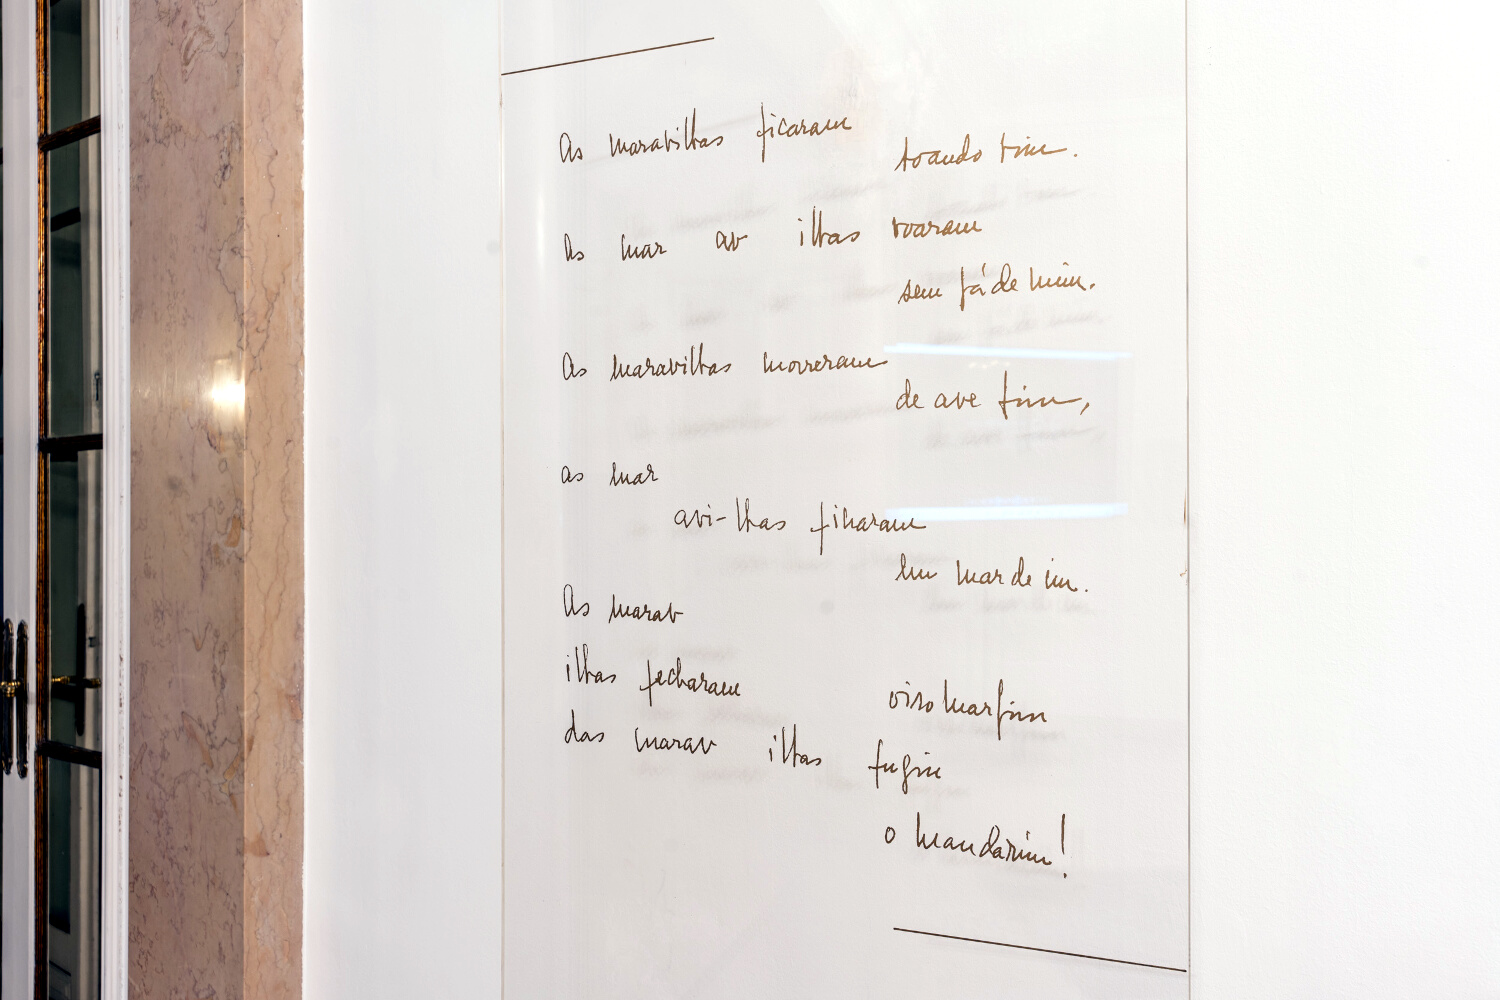 As maravilhas ficaram
toando tim.
As mar av ilhas voaram
sem fá de mim.
As maravilhas morreram
de ave fim,
as mar
avi-lhas ficaram
em mar de im.
As marav
ilhas fecharam
oiro marfim
das marav ilhas fugiu
o mandarim!